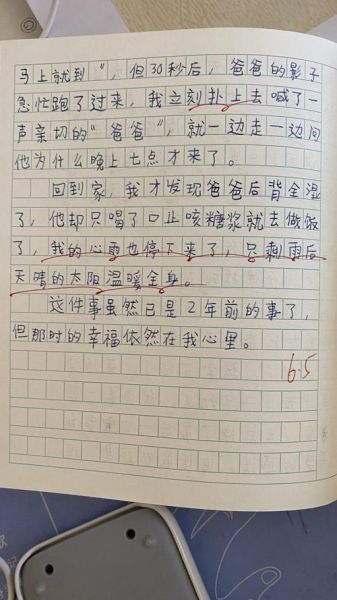 马上就到"，但30秒后，爸爸的影子
急忙跑了过来，我立刻扑上去喊了一
声亲切的"爸爸"，就一边走一边问
他为什么晚上七点才来了。
回到家，我才发现爸爸后背全湿
了，他却只喝了口止咳糖浆就去做饭
了，我的心雨也停下来了，只剩雨后
天晴的太阳温暖全身。
这件事虽然已是2年前的事了，
但那时的幸福依然在我心里。
6.5